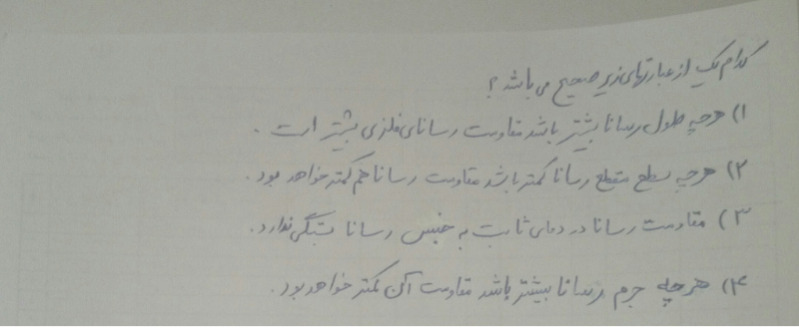 کدام یک از عبارتهای زیر صحیح می باشد؟
۱) هرچه طول رسانا بیشتر باشد مقاومت رسانای فلزی بیشتر است.
۲) هرچه سطح مقطع رسانا کمتر باشد مقاومت رسانا هم کمتر خواهد بود.
۳) مقاومت رسانا در دمای ثابت به جنس رسانا بستگی ندارد.
۴) هرچه جرم رسانا بیشتر باشد مقاومت آن کمتر خواهد بود.